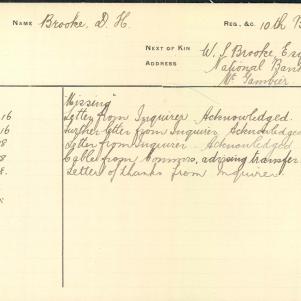 NAME Brooke, D. H. REG., &C. 10th B
NEXT OF KIN W. J. Brooke, Esq
ADDRESS National Ban
Mt Gambier
"Missing"
16 Letter from Inquirer Acknowledged.
16 Further letter from Inquirer Acknowledged
8 Letter from Inquirer Acknowledged
8 Cable from Commrs, advising transfer
8. Letter of thanks from Inquirer